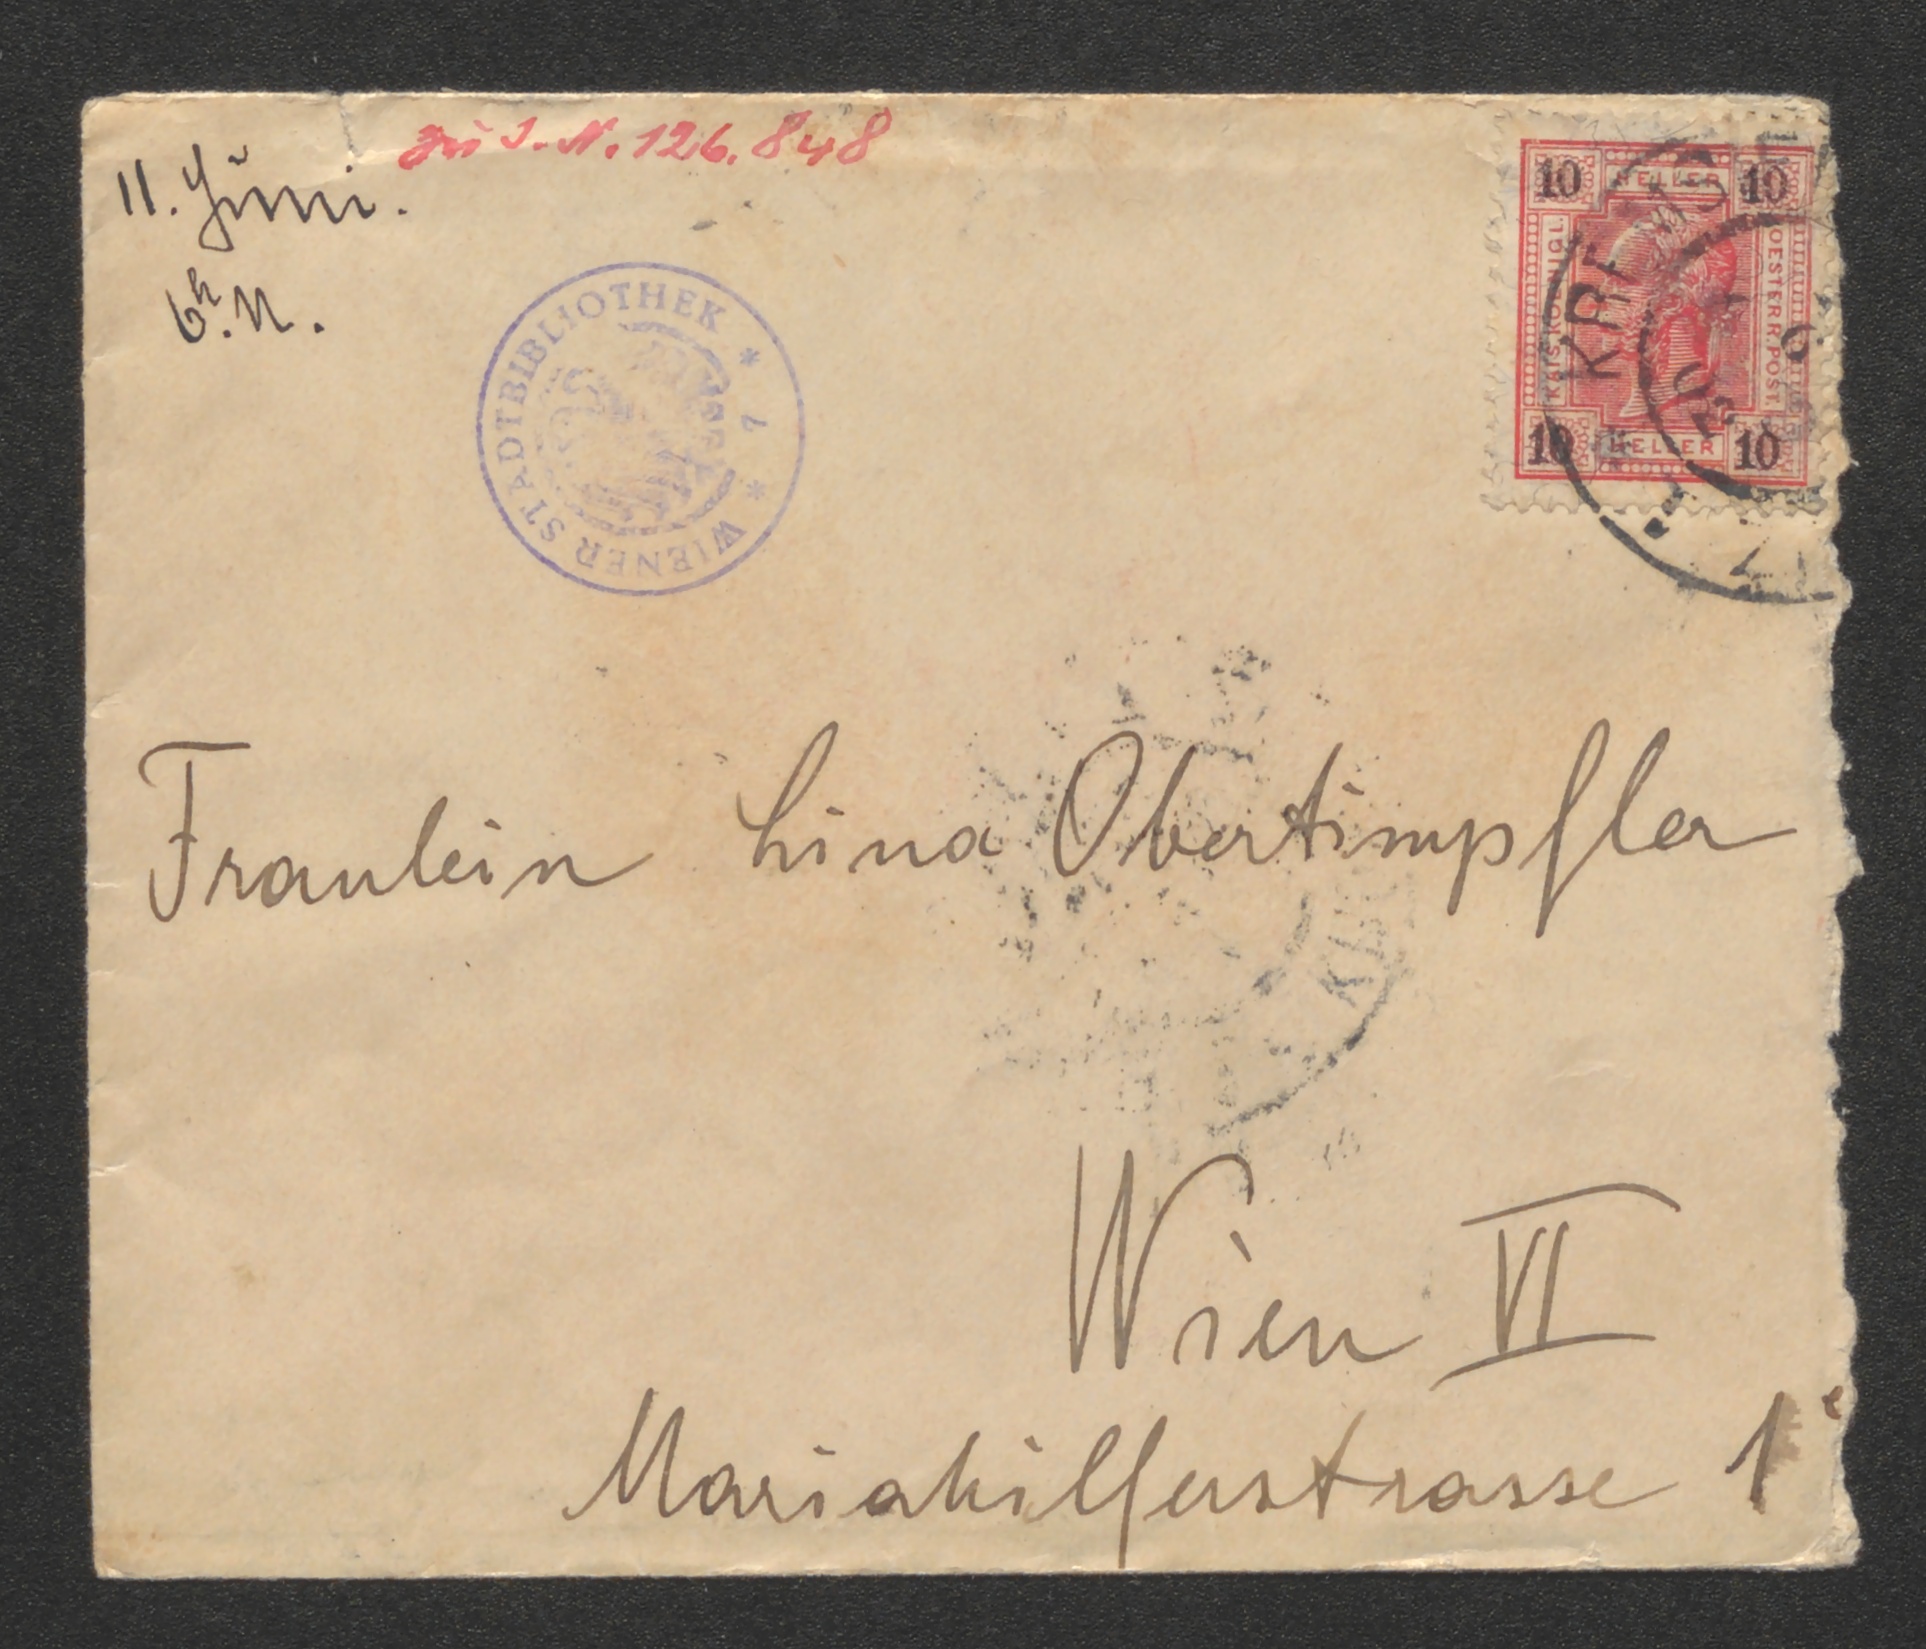 zu I.N. 126.848
11. Juni.
6h. N.
WIENER STADTBIBLIOTHEK * 7 *
10 HELLER 10
KAIS. KÖNIGL. OESTERR. POST.
10 HELLER 10
KREMS
Fraulein Lina Obertimpfler
Wien VI
Mariahilferstrasse 1